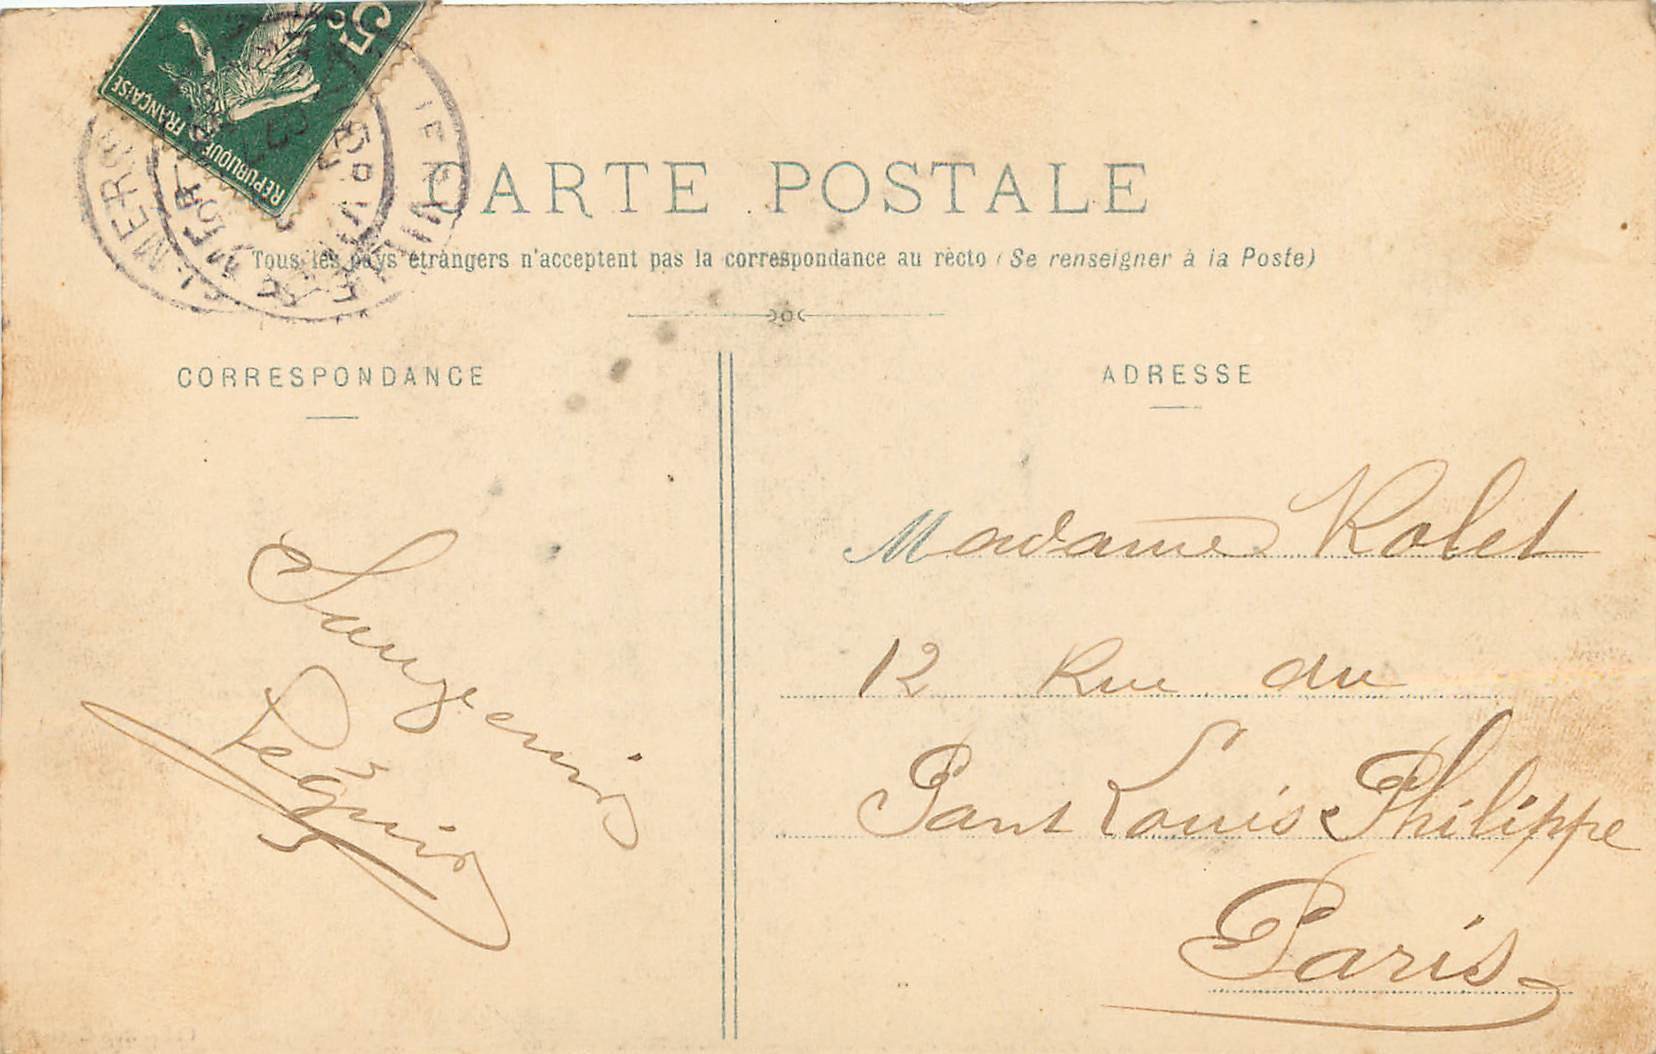 5c
REPUBLIQUE FRANÇAISE
CARTE POSTALE
Tous les pays étrangers n'acceptent pas la correspondance au recto (Se renseigner à la Poste)
CORRESPONDANCE
Péguin
ADRESSE
Madame Rolet
12 Rue du
Pont Louis Philippe
Paris